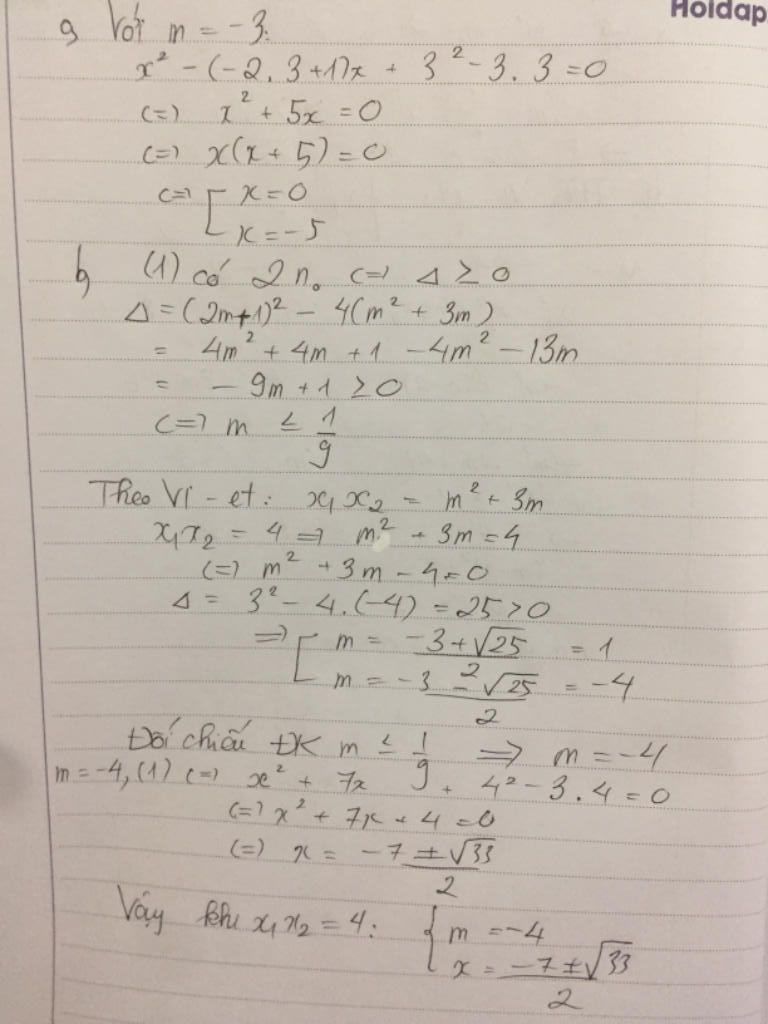 Holdap
a, Với m = -3:
x² - (-2.3+1)x + 3² - 3.3 = 0
<=> x² + 5x = 0
<=> x(x + 5) = 0
<=> [ x = 0
x = -5
b, (1) có 2 n₀ <=> Δ ≥ 0
Δ = (2m+1)² - 4(m² + 3m)
= 4m² + 4m + 1 - 4m² - 13m
= -9m + 1 ≥ 0
<=> m ≤ 1/9
Theo Vi-et: x₁x₂ = m² + 3m
x₁x₂ = 4 => m² + 3m = 4
<=> m² + 3m - 4 = 0
Δ = 3² - 4.(-4) = 25 > 0
=> [ m = (-3 + √25)/2 = 1
m = (-3 - √25)/2 = -4
Đối chiếu ĐK m ≤ 1/9 => m = -4
m = -4, (1) <=> x² + 7x + 4² - 3.4 = 0
<=> x² + 7x + 4 = 0
<=> x = (-7 ± √33)/2
Vậy khi x₁x₂ = 4: { m = -4
x = (-7 ± √33)/2